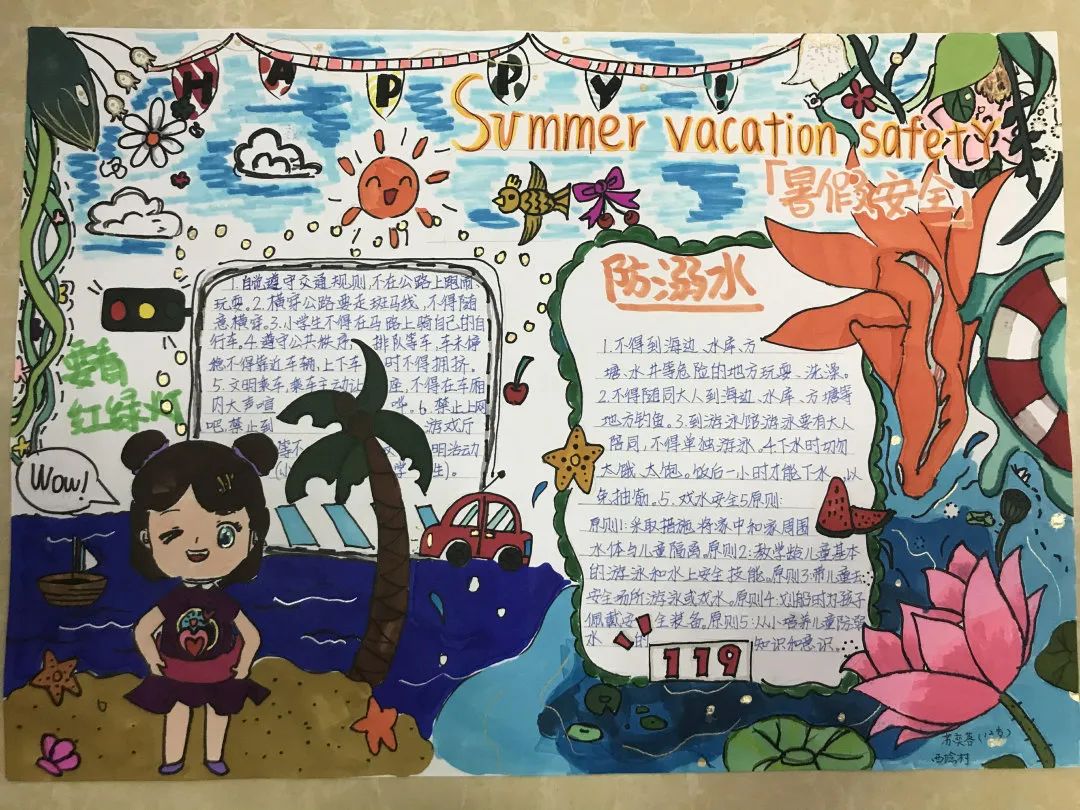 HAPPY!
Summer vacation safety
「暑假安全」
要看
红绿灯
Wow!
1.自觉遵守交通规则,不在公路上跑闹
玩耍。2.横穿公路要走斑马线,不得随
意横穿。3.小学生不得在马路上骑自己的自
行车。4.遵守公共秩序, 排队等车,车未停
稳不得靠近车辆,上下车 时不得拥挤。
5.文明乘车,乘车主动让 座,不得在车厢
内大声喧 哗。6.禁止上网
吧,禁止到 游戏厅
等不 明活动
(小 学 生)。
防溺水
1.不得到海边、水库、方
塘、水井等危险的地方玩耍、洗澡。
2.不得随同大人到海边、水库、方塘等
地方钓鱼。3.到游泳馆游泳要有大人
陪同,不得单独游泳。4.下水时切勿
太饿、太饱。饭后一小时才能下水,以
免抽筋。5.戏水安全5原则:
原则1:采取措施,将家中和家周围
水体与儿童隔离。原则2:教学龄儿童基本
的游泳和水上安全技能。原则3:带儿童去
安全场所游泳或戏水。原则4:划船时为孩子
佩戴 生装备。原则5:从小培养儿童防溺
水 的 知识和意识。
119
(12岁)